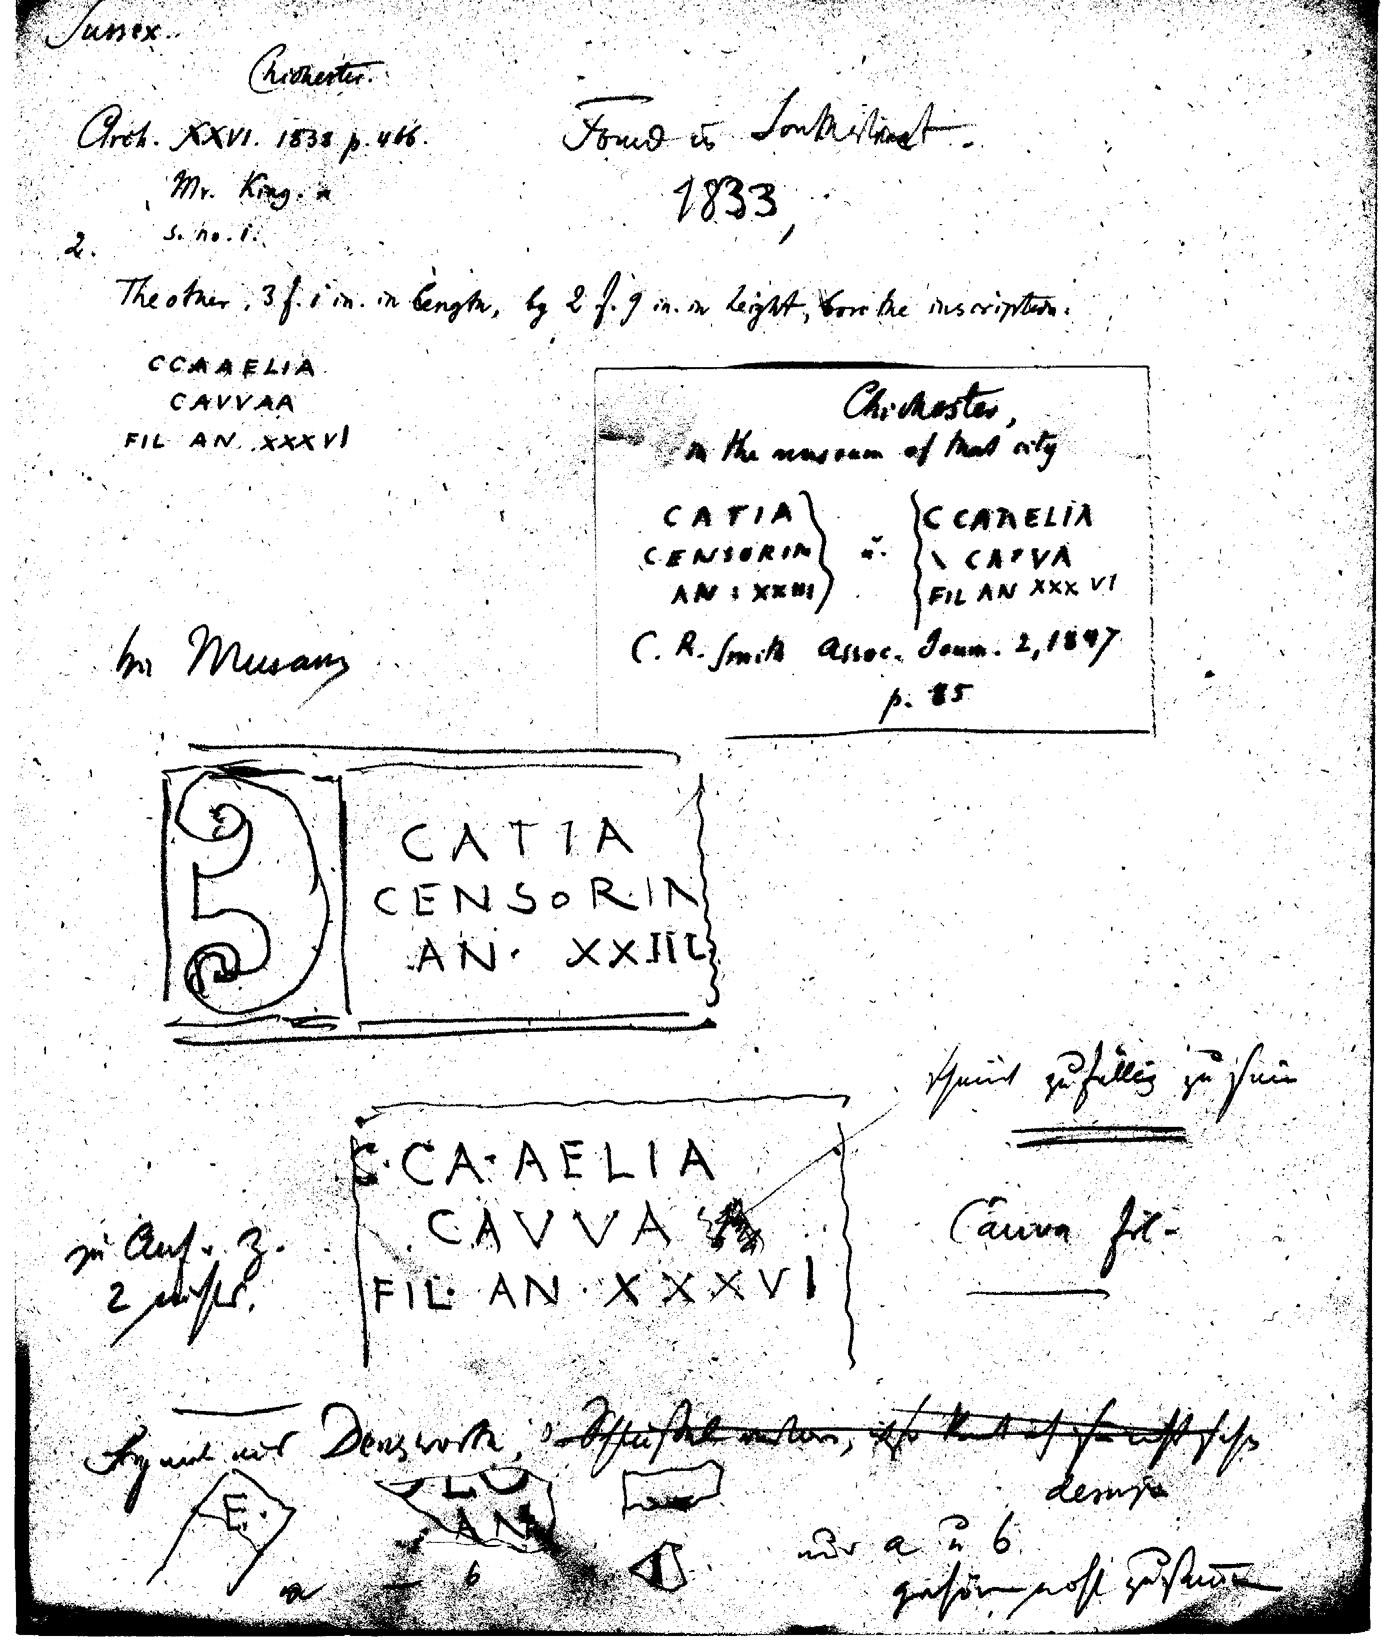 Sussex.
Chichester.
Arch. XXVI. 1838 p. 466.
Found in Southstreet.
1833,
Mr. King.
s. no. 1.
2.
The other, 3 f. 1 in. in length, by 2 f. 9 in. in height, bore the inscription.
CCAAELIA
CAVVAA
FIL AN. XXXVI
Chichester,
in the museum of that city
CATIA
CENSORIN
AN : XXIII
u.
C CAAELIA
\ CAVVA
FIL AN XXX VI
C. R. Smith Assoc. Journ. 2, 1847
p. 85
Im Museum
CATIA
CENSORIN
AN. XXIII
scheint zufällig zu sein
C. CA. AELIA
CAVVA
FIL. AN. XXXVI
Cauva fil.
zu Anf. Z.
2 nichts.
Fragment aus Densworth,
E.
LO
AN
a
b
nur a u b
gehören wohl zusammen